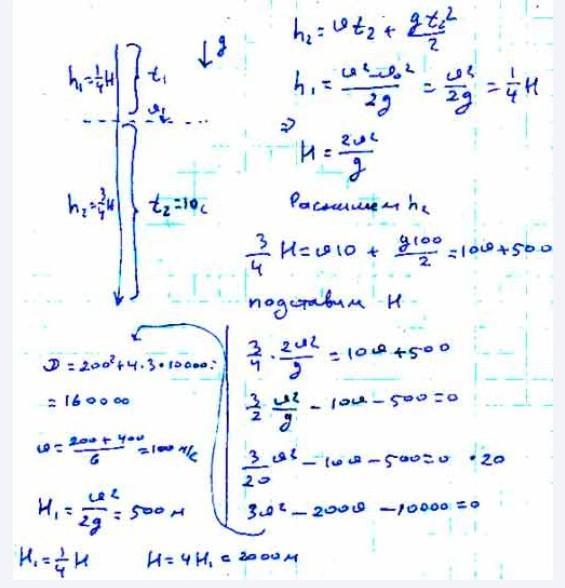 ↓g
h₁=¼H
t₁
h₂=¾H
t₂=10c
h₂=υt₂+gt₂²/2
h₁=(υ²-υ₀²)/2g=υ²/2g=¼H
⇒
H=2υ²/g
Распишем h₂
3/4 H=υ10+g100/2=10υ+500
подставим H
3/4·2υ²/g=10υ+500
3/2 υ²/g-10υ-500=0
3/20 υ²-10υ-500=0 ·20
3υ²-200υ-10000=0
D=200²+4·3·10000=
=160000
υ=(200+400)/6=100 м/с
H₁=υ²/2g=500м
H₁=¼H H=4H₁=2000м